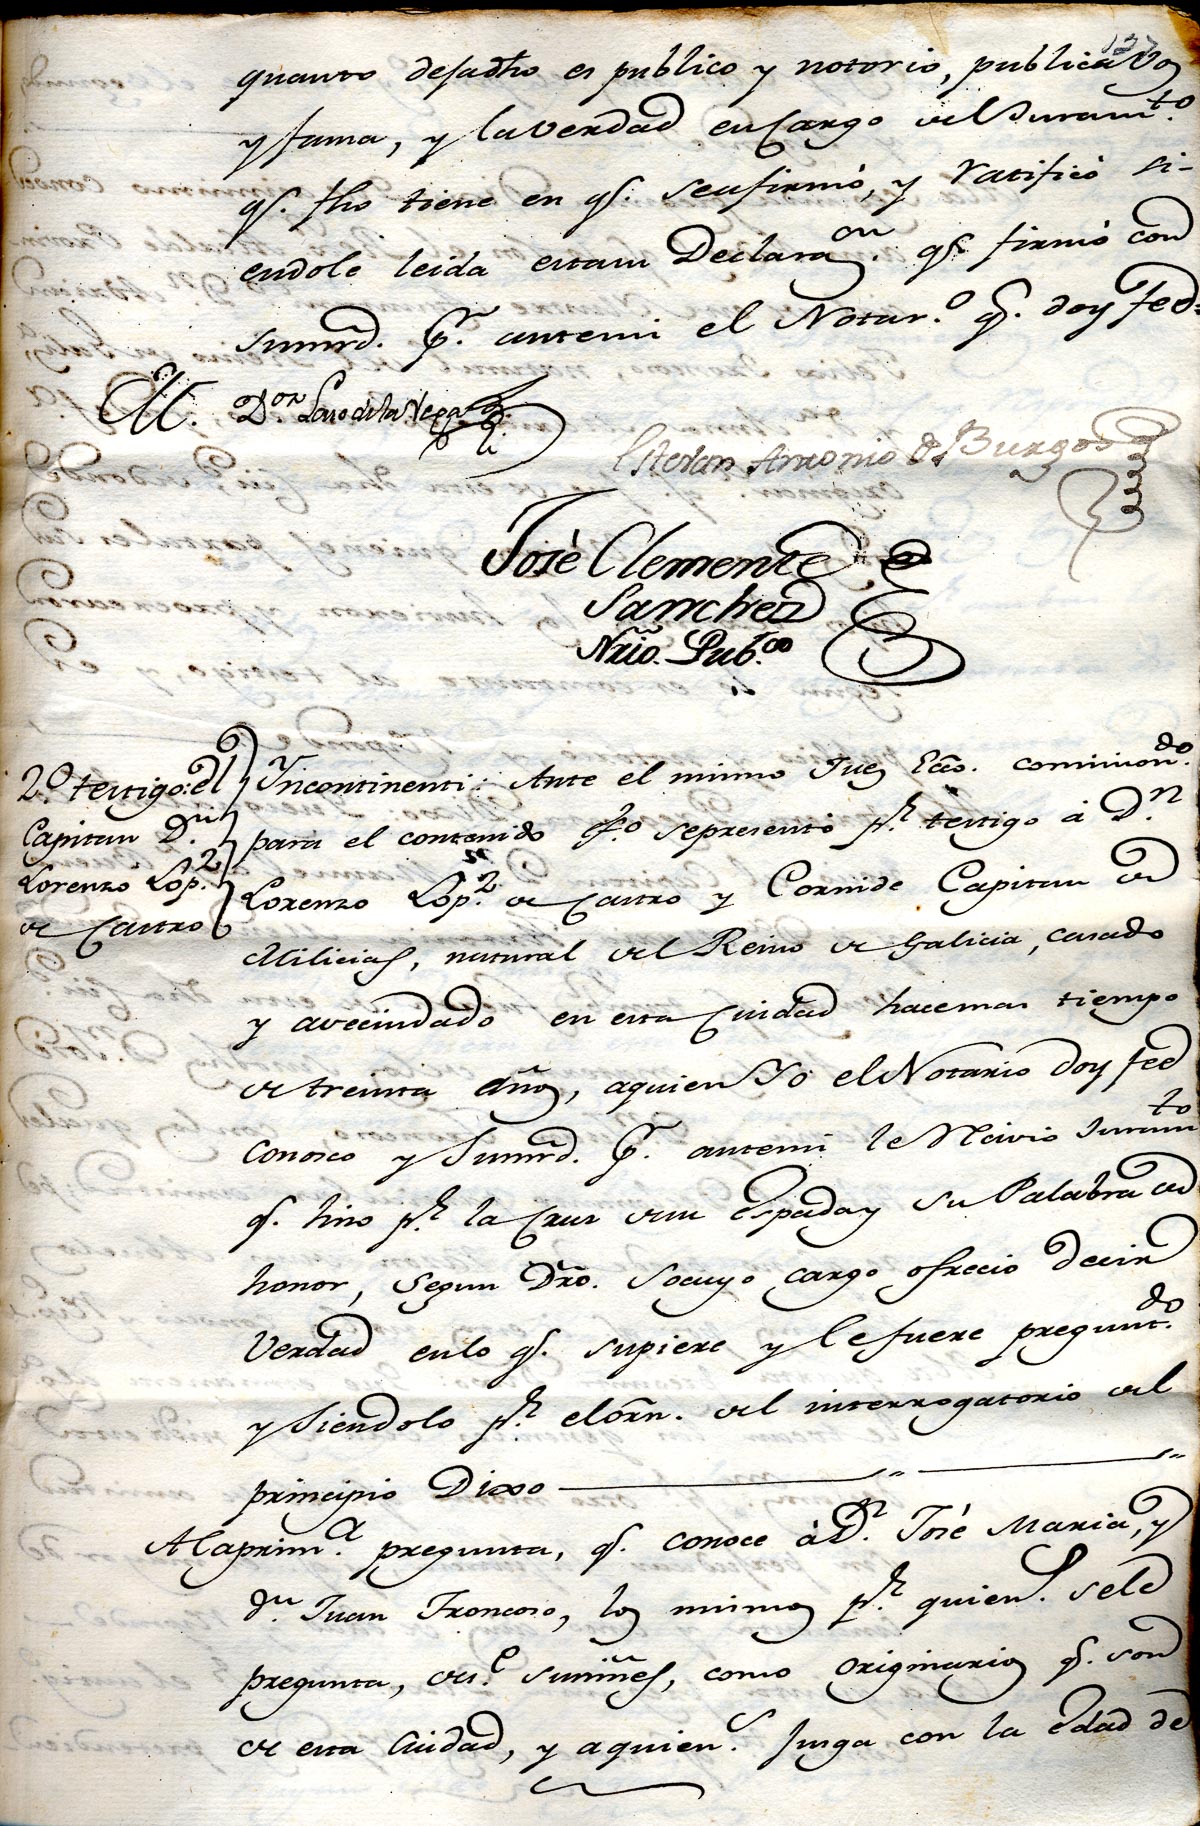 quanto desadho es publico y notorio, publica Voz
y fama, y la Verdad en Cargo del Juramto.
qe. fho tiene en qe. seafirmó, y ratificó si-
endole leida estasu Declaraon. qe. firmó con
sumrd. pr. antemi el Notaro. qe. doy feé=
M. Dor. Laso de la Vega
Estevan Antonio de Burgos
José Clemente
Sanchez
Nrio. Pubco.
2o. testigo: el
Capitan Dn.
Lorenzo Lopz.
de Castro
Yncontinenti: Ante el mismo Juez Ecco. comisiondo.
para el contenido fo. sepresentó pr. testigo á Dn.
Lorenzo Lopz. de Castro y Cornide Capitan de
Milicias, natural del Reino de Galicia, casado
y avecindado en esta Ciudad hacemas tiempo
de treinta años, aquien Yó el Notario doy feé
conosco y Sumrd. pr. antemi le Recivio Juramto
qe. hizo pr. la Cruz desu Espada y su Palabra de
honor, segun Dro. socuyo cargo ofrecio decir
Verdad enlo qe. supiere y lefuere preguntdo.
y siendolo pr. elórn. del interrogatorio del
principio Dixo
Alaprima. pregunta, qe. conoce á Dn. José Maria, y
dn. Juan Troncoso, los mismos pr. quiens. sele
pregunta, desde. suniñes, como originarios qe. son
de esta Ciudad, y aquiens. Juzga con la Edad de